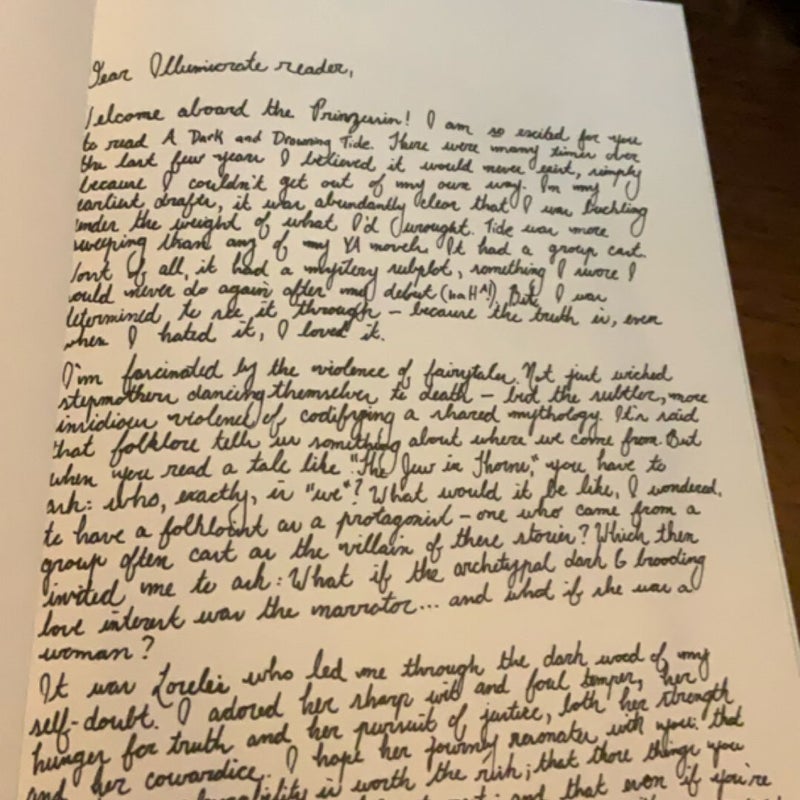 Dear Illumicrate reader,
Welcome aboard the Prinzessin! I am so excited for you
to read A Dark and Drowning Tide. There were many times over
the last few years I believed it would never exist, simply
because I couldn't get out of my own way. In my
earliest drafts, it was abundantly clear that I was buckling
under the weight of what I'd wrought. Tide was more
sweeping than any of my YA novels. It had a group cast.
Worst of all, it had a mystery subplot, something I swore I
would never do again after my debut (haHA!). But I was
determined to see it through – because the truth is, even
when I hated it, I loved it.
I'm fascinated by the violence of fairytales. Not just wicked
stepmothers dancing themselves to death – but the subtler, more
insidious violence of codifying a shared mythology. It's said
that folklore tells us something about where we come from. But
when you read a tale like "The Jew in Thorns," you have to
ask: who, exactly, is "we"? What would it be like, I wondered,
to have a folklorist as a protagonist – one who came from a
group often cast as the villain of these stories? Which then
invited me to ask: What if the archetypal dark & brooding
love interest was the narrator... and what if she was a
woman?
It was Lorelei who led me through the dark wood of my
self-doubt. I adored her sharp wit and foul temper, her
hunger for truth and her pursuit of justice, both her strength
and her cowardice. I hope her journey resonates with you: that
vulnerability is worth the risk; that those things you
and that even if you're